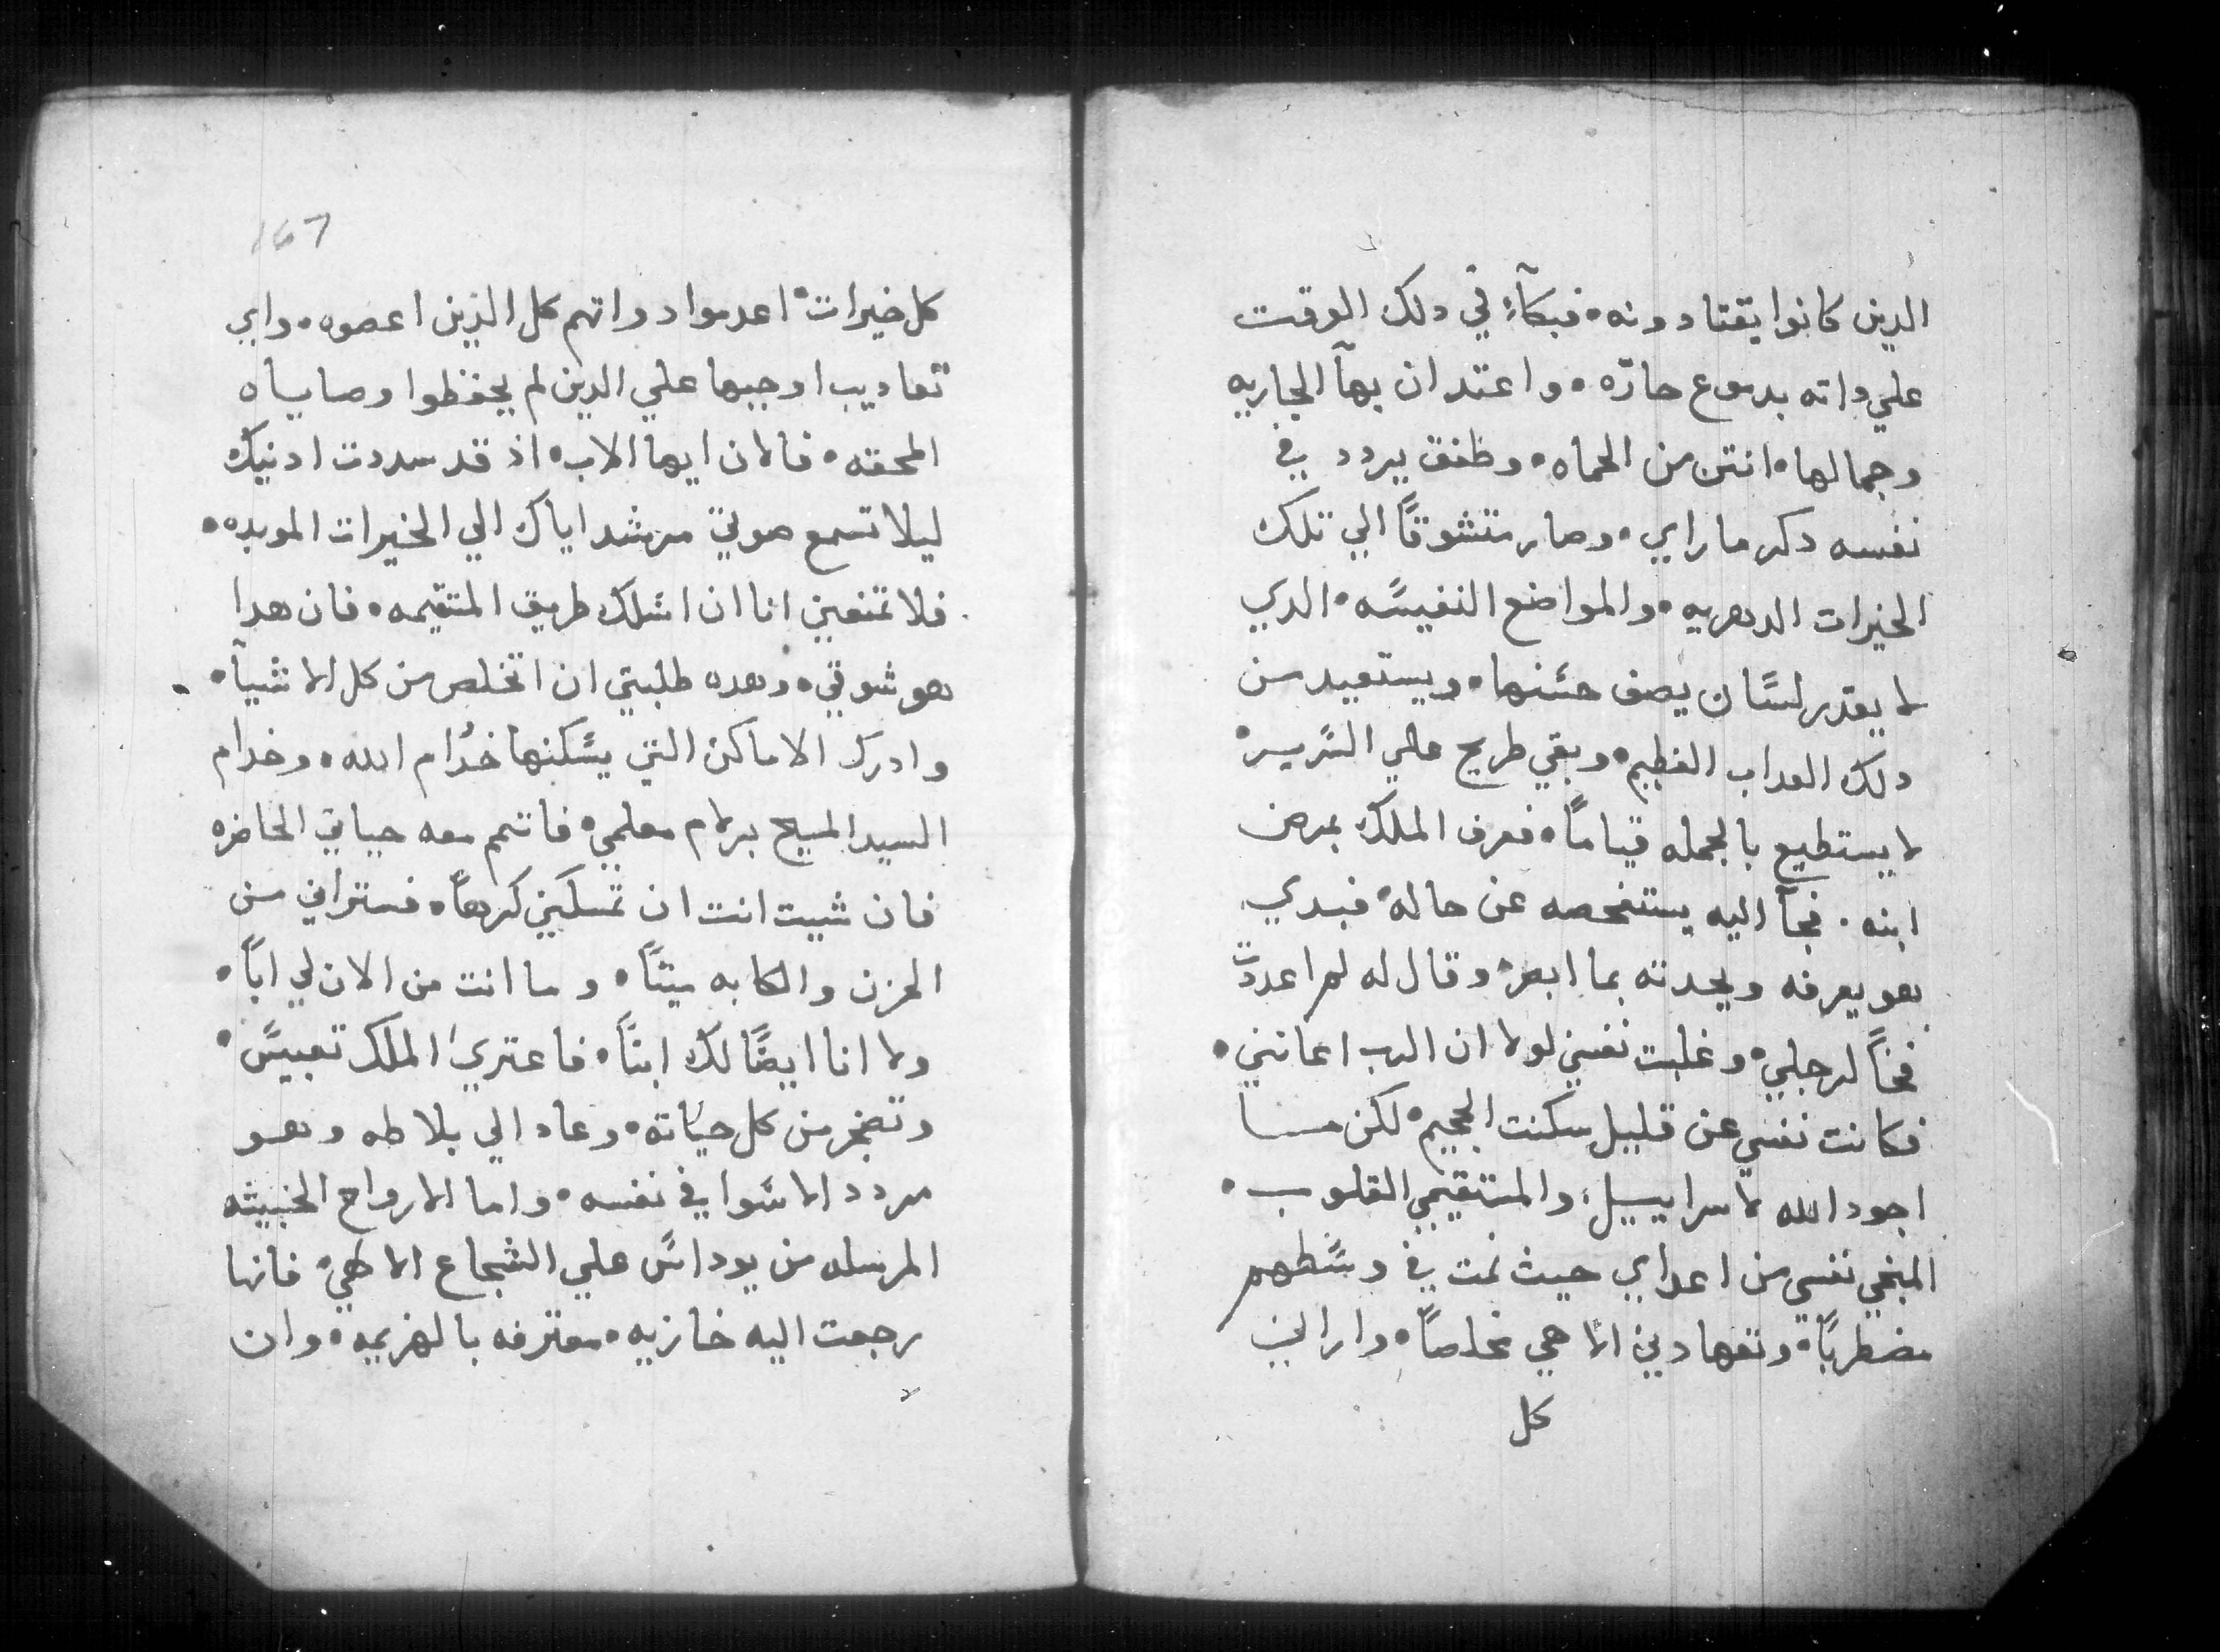 الدين كانوا يقتادونه • فبكآء في دلك الوقت
علي داته بدموع حارّه • واعتد ان بهآ الجاريه
وجمالها • انتن من الحماه • وطفق يردد في
نفسه دكر ما راي • وصار متشوقاً الي تلك
الخيرات الدهريه • والمواضع النفيسه • الدي
لا يقدر لسان يصف حسنها • ويستعيد من
دلك العداب الفظيم • وبقي طريح علي السرير •
لا يستطيع بالجمله قياماً • فعرف الملك بمرض
ابنه . فجآ اليه يستفحصه عن حاله • فبدي
هو يعرفه ويحدته بما ابصر • وقال له لم اعددت
فخاً لرجلي • وغلبت نفسي لولا ان الرب اعانني •
فكانت نفسي عن قليل سكنت الجحيم • لكن ما
اجود الله لاسراييل • والمستقيمي القلوب •
المنجي نفسي من اعداي حيث نمت في وسطهم
مضطرباً • وتعهادني الاهي مخلصاً • واراني
كل
167
كل خيرات • اعدموا دواتهم كل الذين اعصوه • واي
تعاديب اوجبها علي الدين لم يحفظوا وصاياه
المحقه • فالان ايها الاب • اذ قد سددت ادنيك
ليلا تسمع صوتي مرشد اياك الي الخيرات الموبده •
فلا تمنعني انا ان اسلك طريق المتقيمه • فان هدا
هو شوقي • وهده طلبتي ان اتخلص من كل الاشيآ •
وادرك الاماكن التي يسكنها خدام الله • وخدام
السيد المسيح برلام معلمي • فاتمم معه حياتي الحاضره
فان شيت انت ان تمسكني كرهاً • فستراني من
الحزن والكابه ميتاً • وما انت من الان لي اباً •
ولا انا ايضاً لك ابناً • فاعتري الملك تعبيس •
وتضجر من كل حياته • وعاد الي بلاطه وهو
مردد الاسوا في نفسه • واما الارواح الخبيثه
المرسله من يوداس علي الشجاع الاهي • فانها
رجعت اليه خازيه • معترفه بالهزيمه • وان